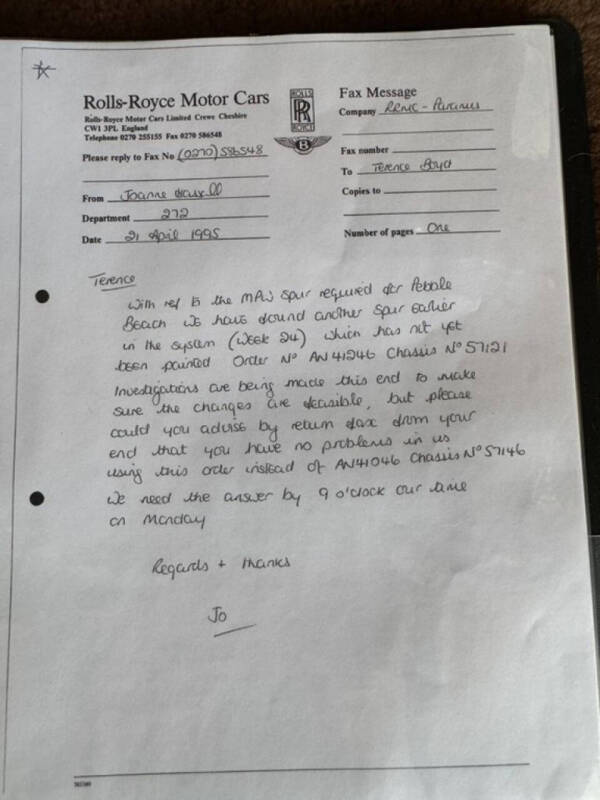 Rolls-Royce Motor Cars
Rolls-Royce Motor Cars Limited Crewe Cheshire
CW1 3PL England
Telephone 0270 255155 Fax 0270 586548
Please reply to Fax No (0270) 586548
From Joanne
Department 272
Date 21 April 1995
ROLLS
RR
ROYCE
B
Fax Message
Company RRMC - Paramus
Fax number
To Terence Boyd
Copies to
Number of pages One
Terence
With ref to the MPW Spur required for Pebble
Beach we have found another Spur earlier
in the system (week 24) which has not yet
been painted Order No AN41246 Chassis No 57121
Investigations are being made this end to make
sure the changes are feasible, but please
could you advise by return fax from your
end that you have no problems in us
using this order instead of AN41046 Chassis No 57146
We need the answer by 9 o'clock our time
on Monday
Regards + thanks
Jo